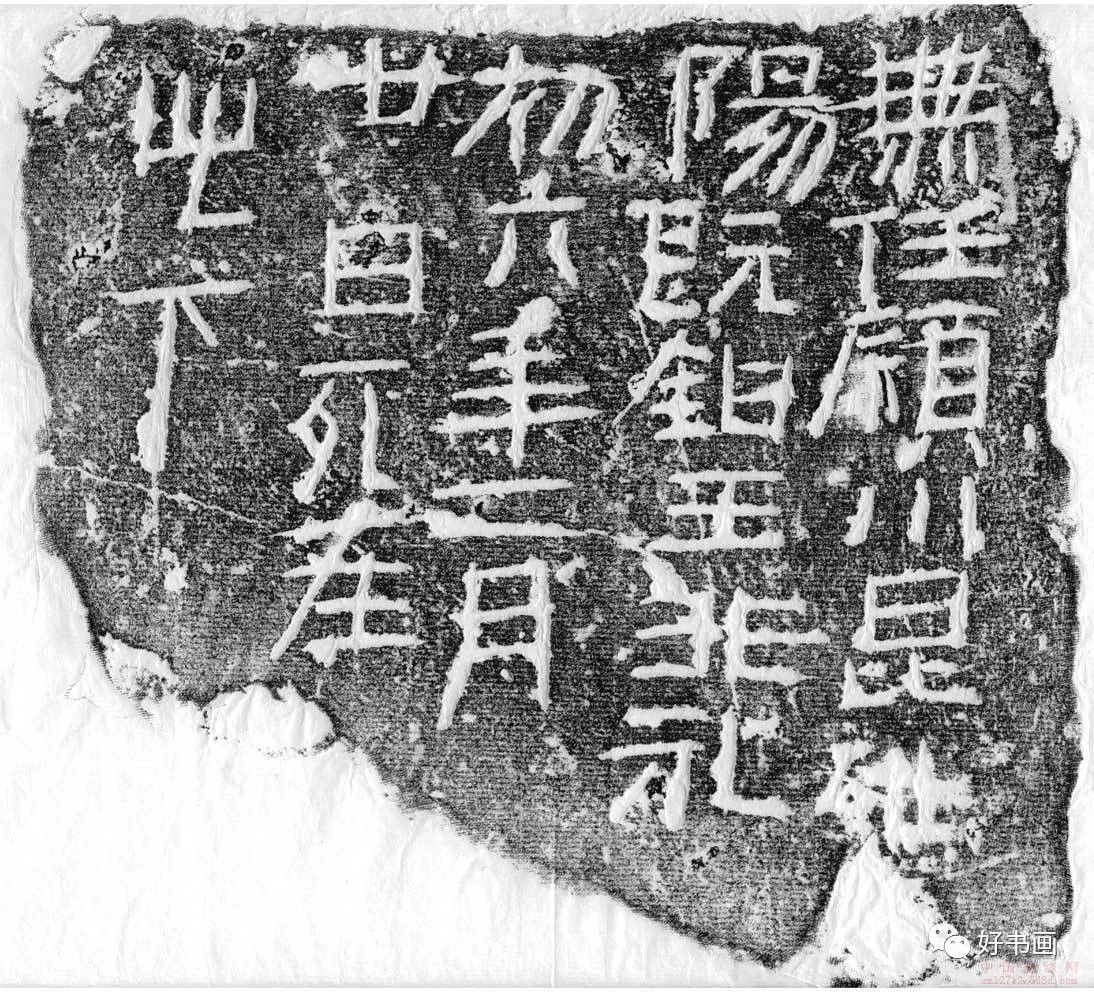 無任潁川昆
陽髡鉗王非
初六年二月
廿日死在
此下
好书画